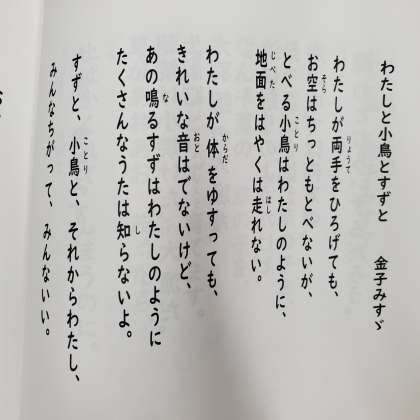 わたしと小鳥とすずと
金子みすゞ
わたしが両手をひろげても、
お空はちっともとべないが、
とべる小鳥はわたしのように、
地面をはやくは走れない。
わたしが体をゆすっても、
きれいな音はでないけど、
あの鳴るすずはわたしのように
たくさんなうたは知らないよ。
すずと、小鳥と、それからわたし、
みんなちがって、みんないい。